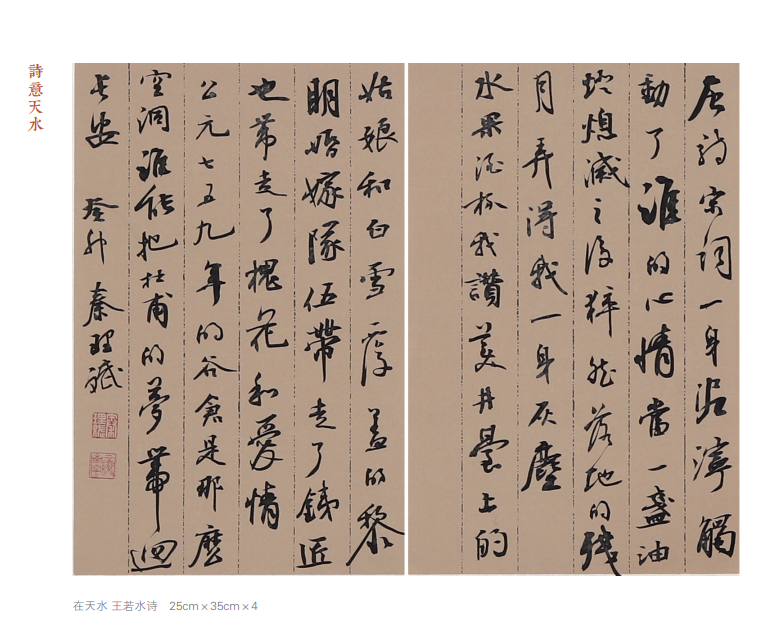 詩意天水
唐詩宋詞一身泥濘觸
動了誰的心情當一盞油
燈熄滅之後猝然落地的殘
月弄得我一身灰塵
水果酒杯我讚美井臺上的
姑娘和白雪覆蓋的黎
明婚嫁隊伍帶走了鐵匠
也帶走了槐花和愛情
公元七五九年的谷倉是那麼
空洞誰能把杜甫的夢帶迴
長安 癸卯 秦理斌
在天水 王若水诗 25cm×35cm×4